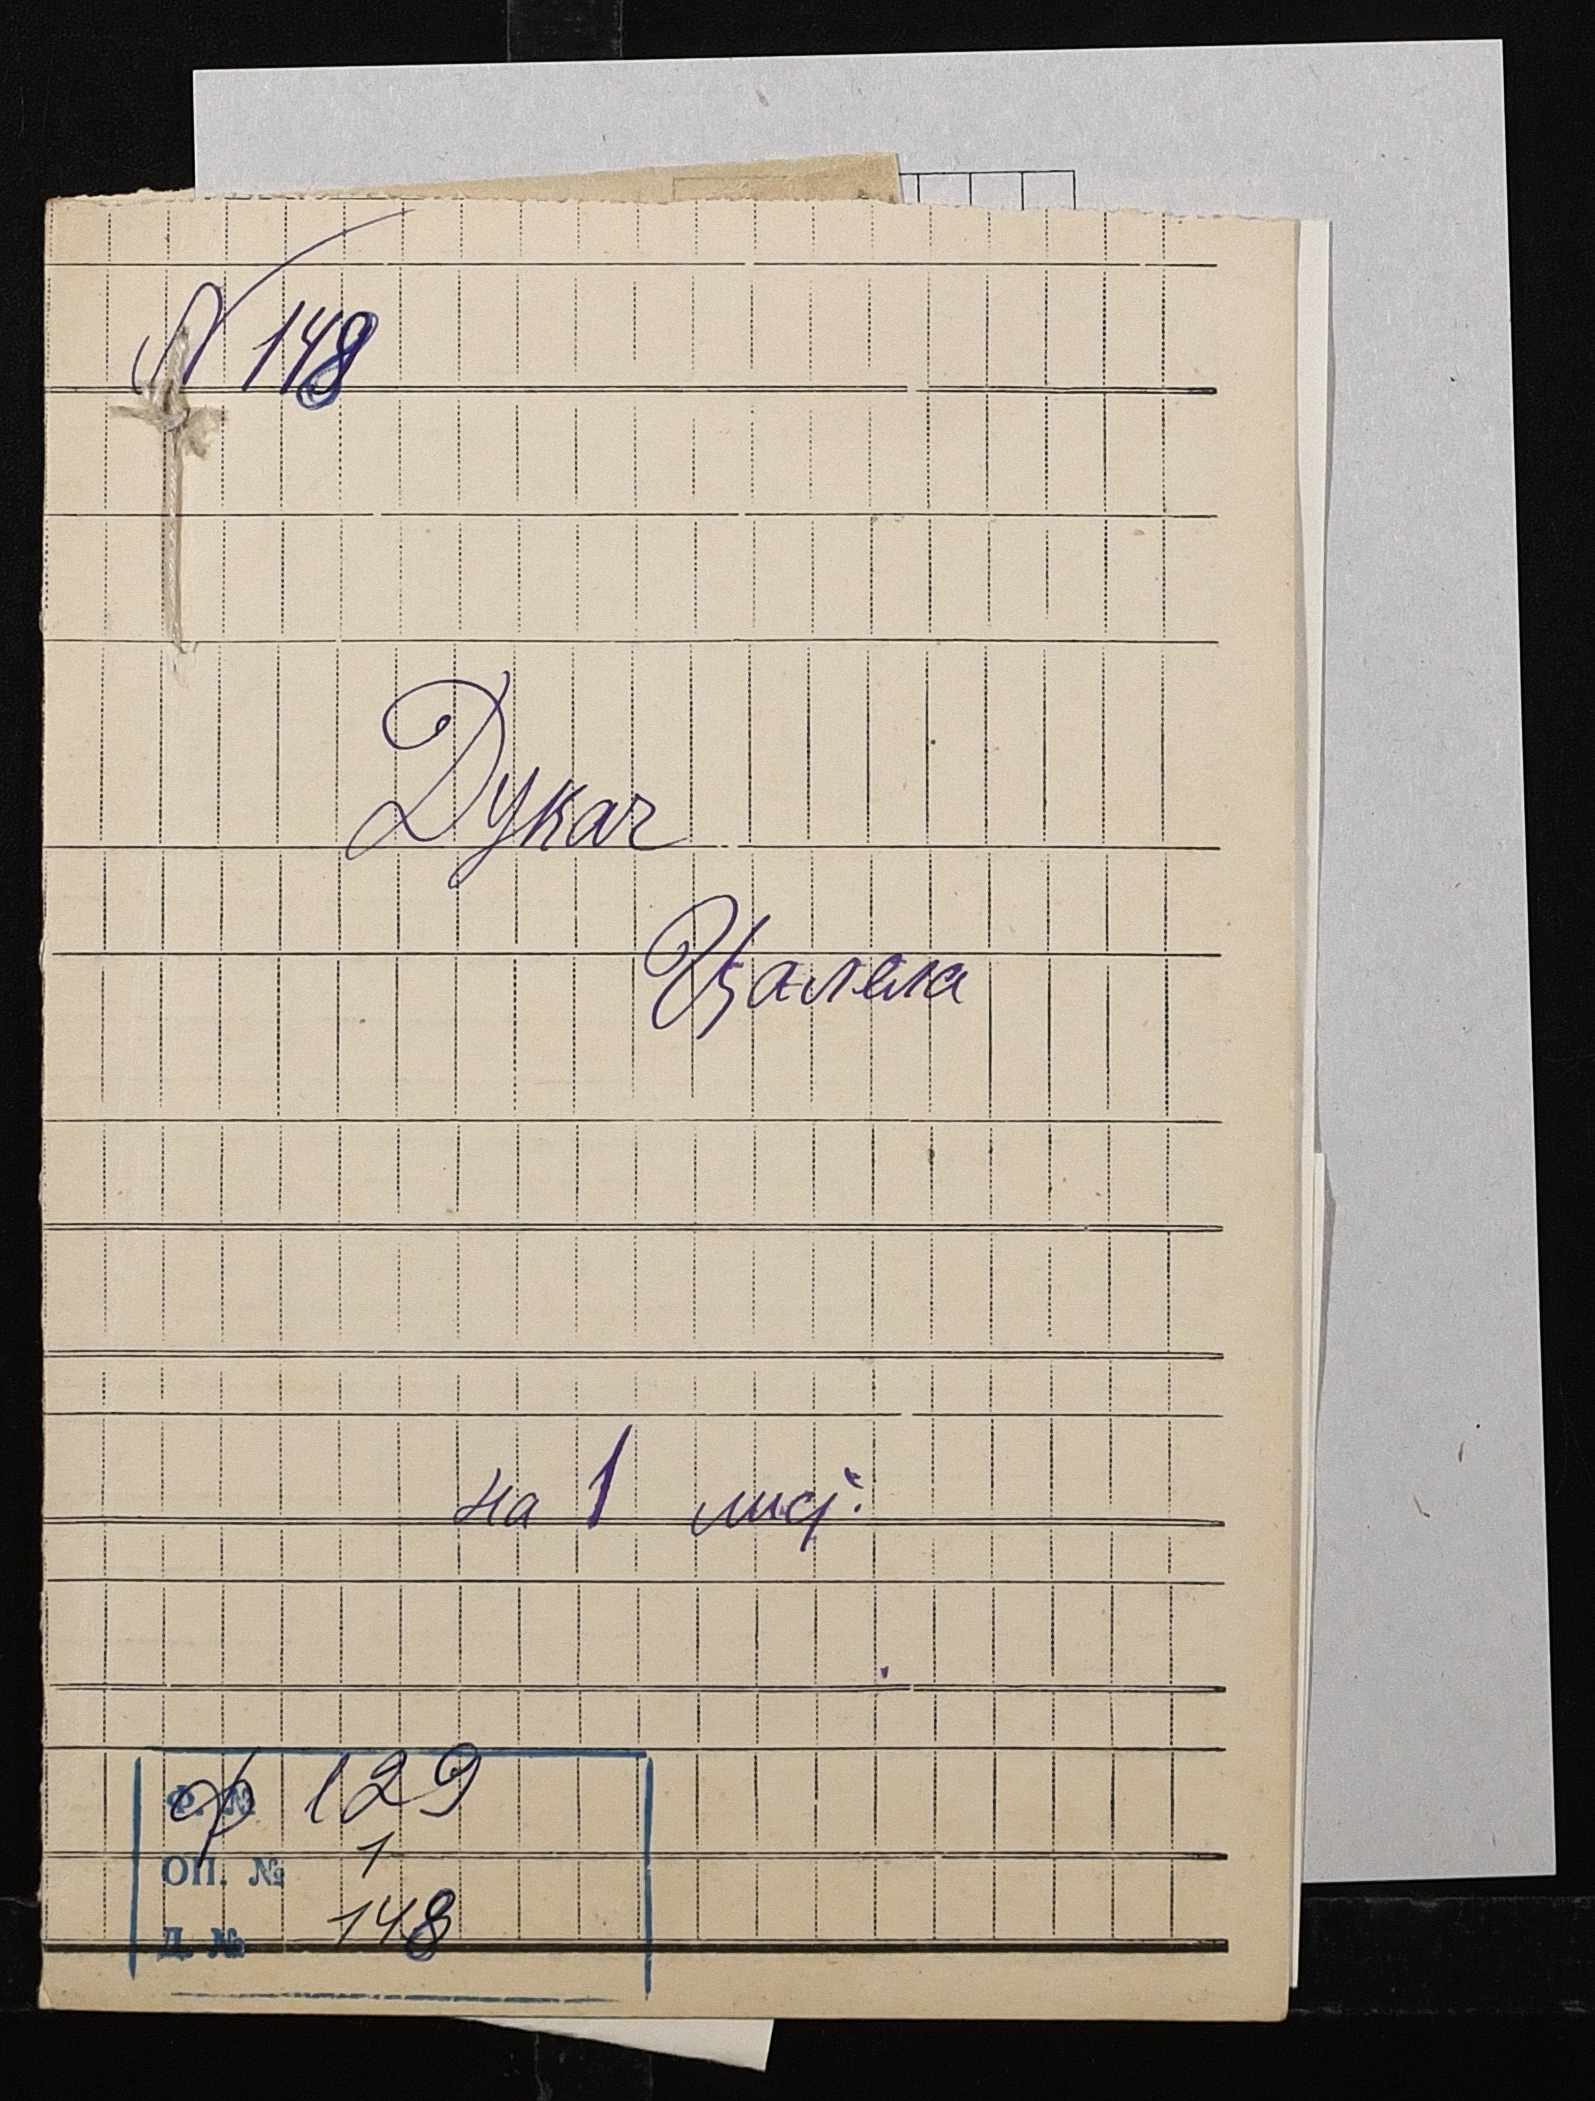 N 148
Дукач
Цалека
на 1 лист.
Ф. № ф 129
ОП. № 1
Д. № 148